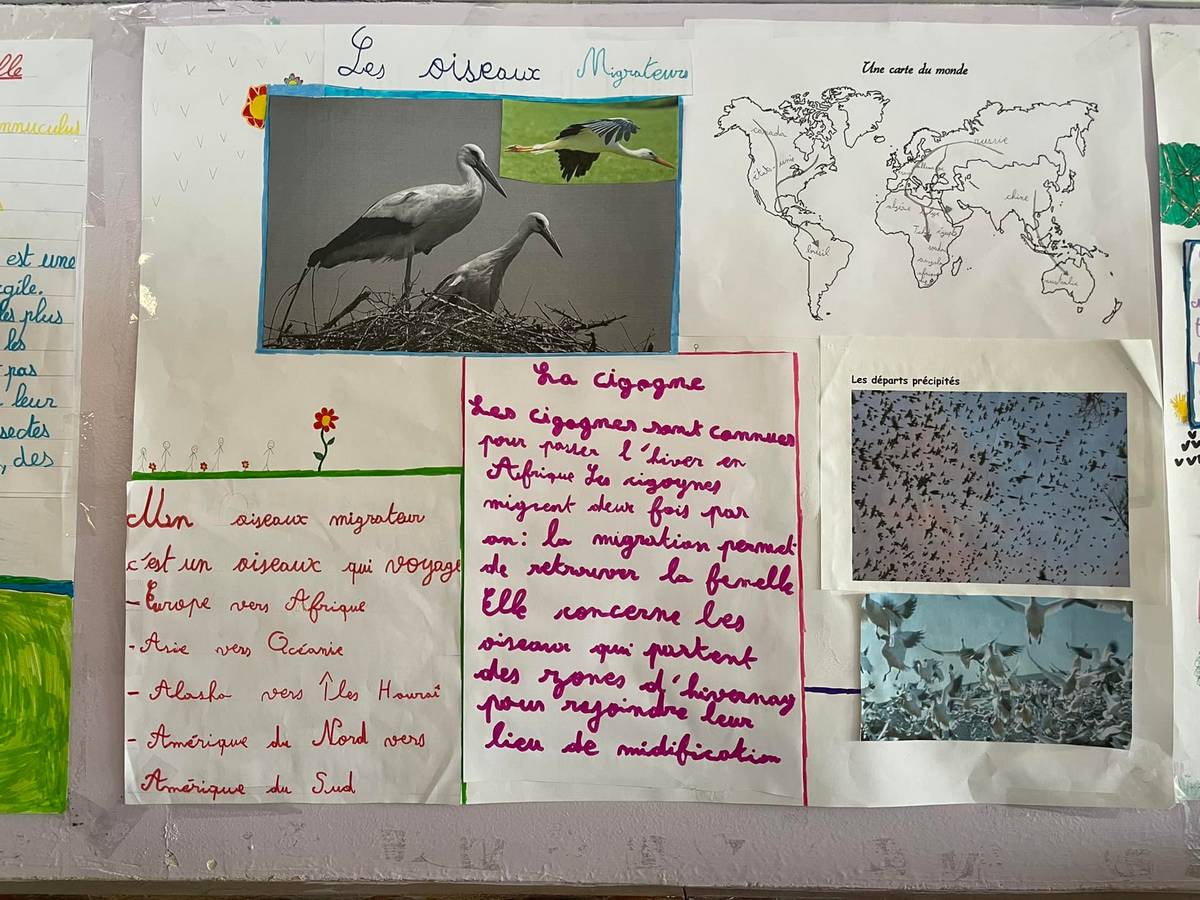 lle
nnuculus
est une
gile.
les plus
les
pas
leur
sectes
, des
Les oiseaux Migrateurs
Une carte du monde
canada
russie
chine
algérie
brésil
australie
Les départs précipités
Un oiseaux migrateur
c'est un oiseaux qui voyage
- Europe vers Afrique
- Asie vers Océanie
- Alaska vers Îles Hawaï
- Amérique du Nord vers
Amérique du Sud
La cigogne
Les cigognes sont connues
pour passer l'hiver en
Afrique Les cigoynes
migrent deux fois par
an: la migration permet
de retrouver la femelle
Elle concerne les
oiseaux qui partent
des zones d'hivernay
pour rejoindre leur
lieu de midification